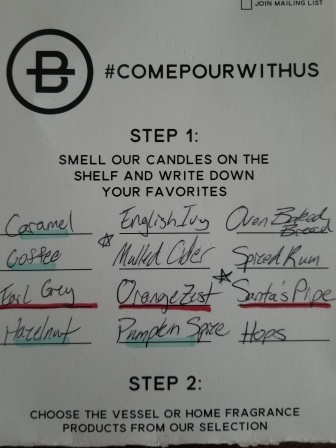 JOIN MAILING LIST
B
#COMEPOURWITHUS
STEP 1:
SMELL OUR CANDLES ON THE
SHELF AND WRITE DOWN
YOUR FAVORITES
Caramel English Ivy Oven Baked
Bread
Coffee Mulled Cider Spiced Rum
Earl Grey Orange Zest Santa's Pipe
Hazelnut Pumpkin Spice Hops
STEP 2:
CHOOSE THE VESSEL OR HOME FRAGRANCE
PRODUCTS FROM OUR SELECTION